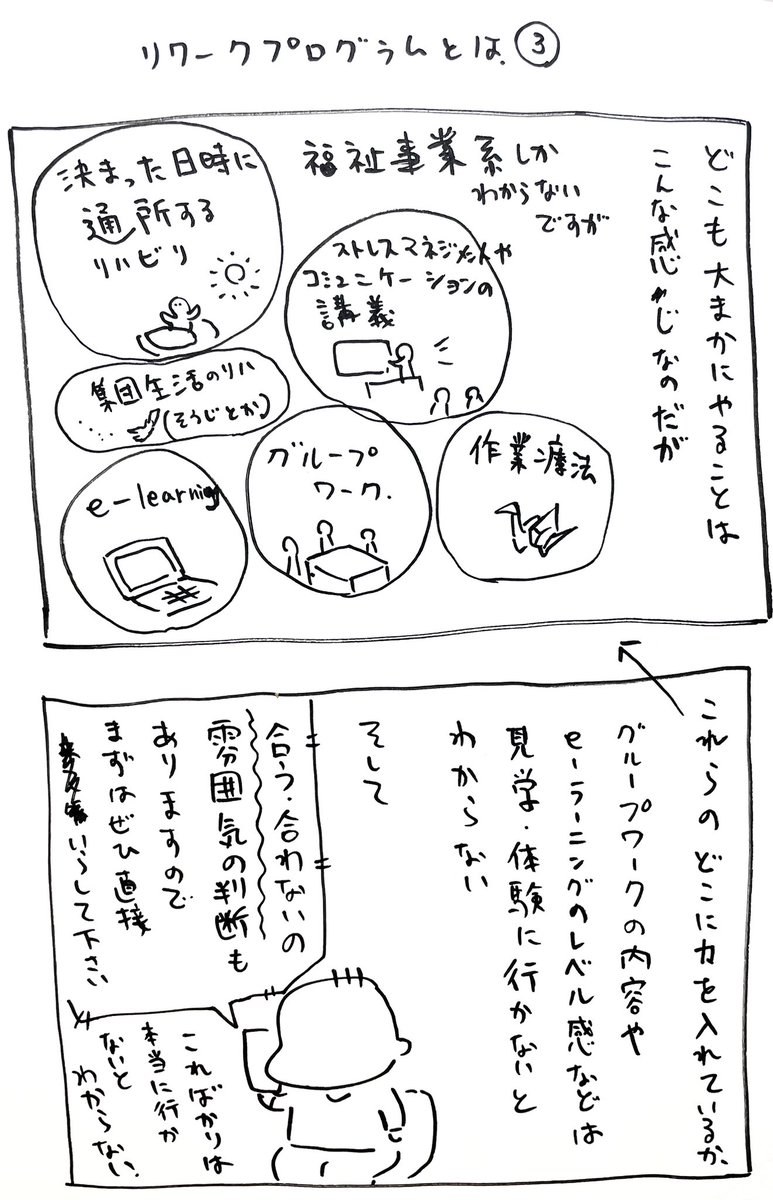 リワークプログラムとは③
どこも大まかにやることは
こんな感じなのだが
福祉事業系しか
わからない
ですが
決まった日時に
通所する
リハビリ
ストレスマネジメントや
コミュニケーションの
講義
集団生活のリハ
(そうじとか)
e-learning
グループ
ワーク.
作業療法
これらのどこに力を入れているか、
グループワークの内容や
eーラーニングのレベル感などは
見学・体験に行かないと
わからない
そして
合う・合わないの
雰囲気の判断も
ありますので
まずはぜひ直接
いらして下さい
こればかりは
本当に行か
ないと
わからない